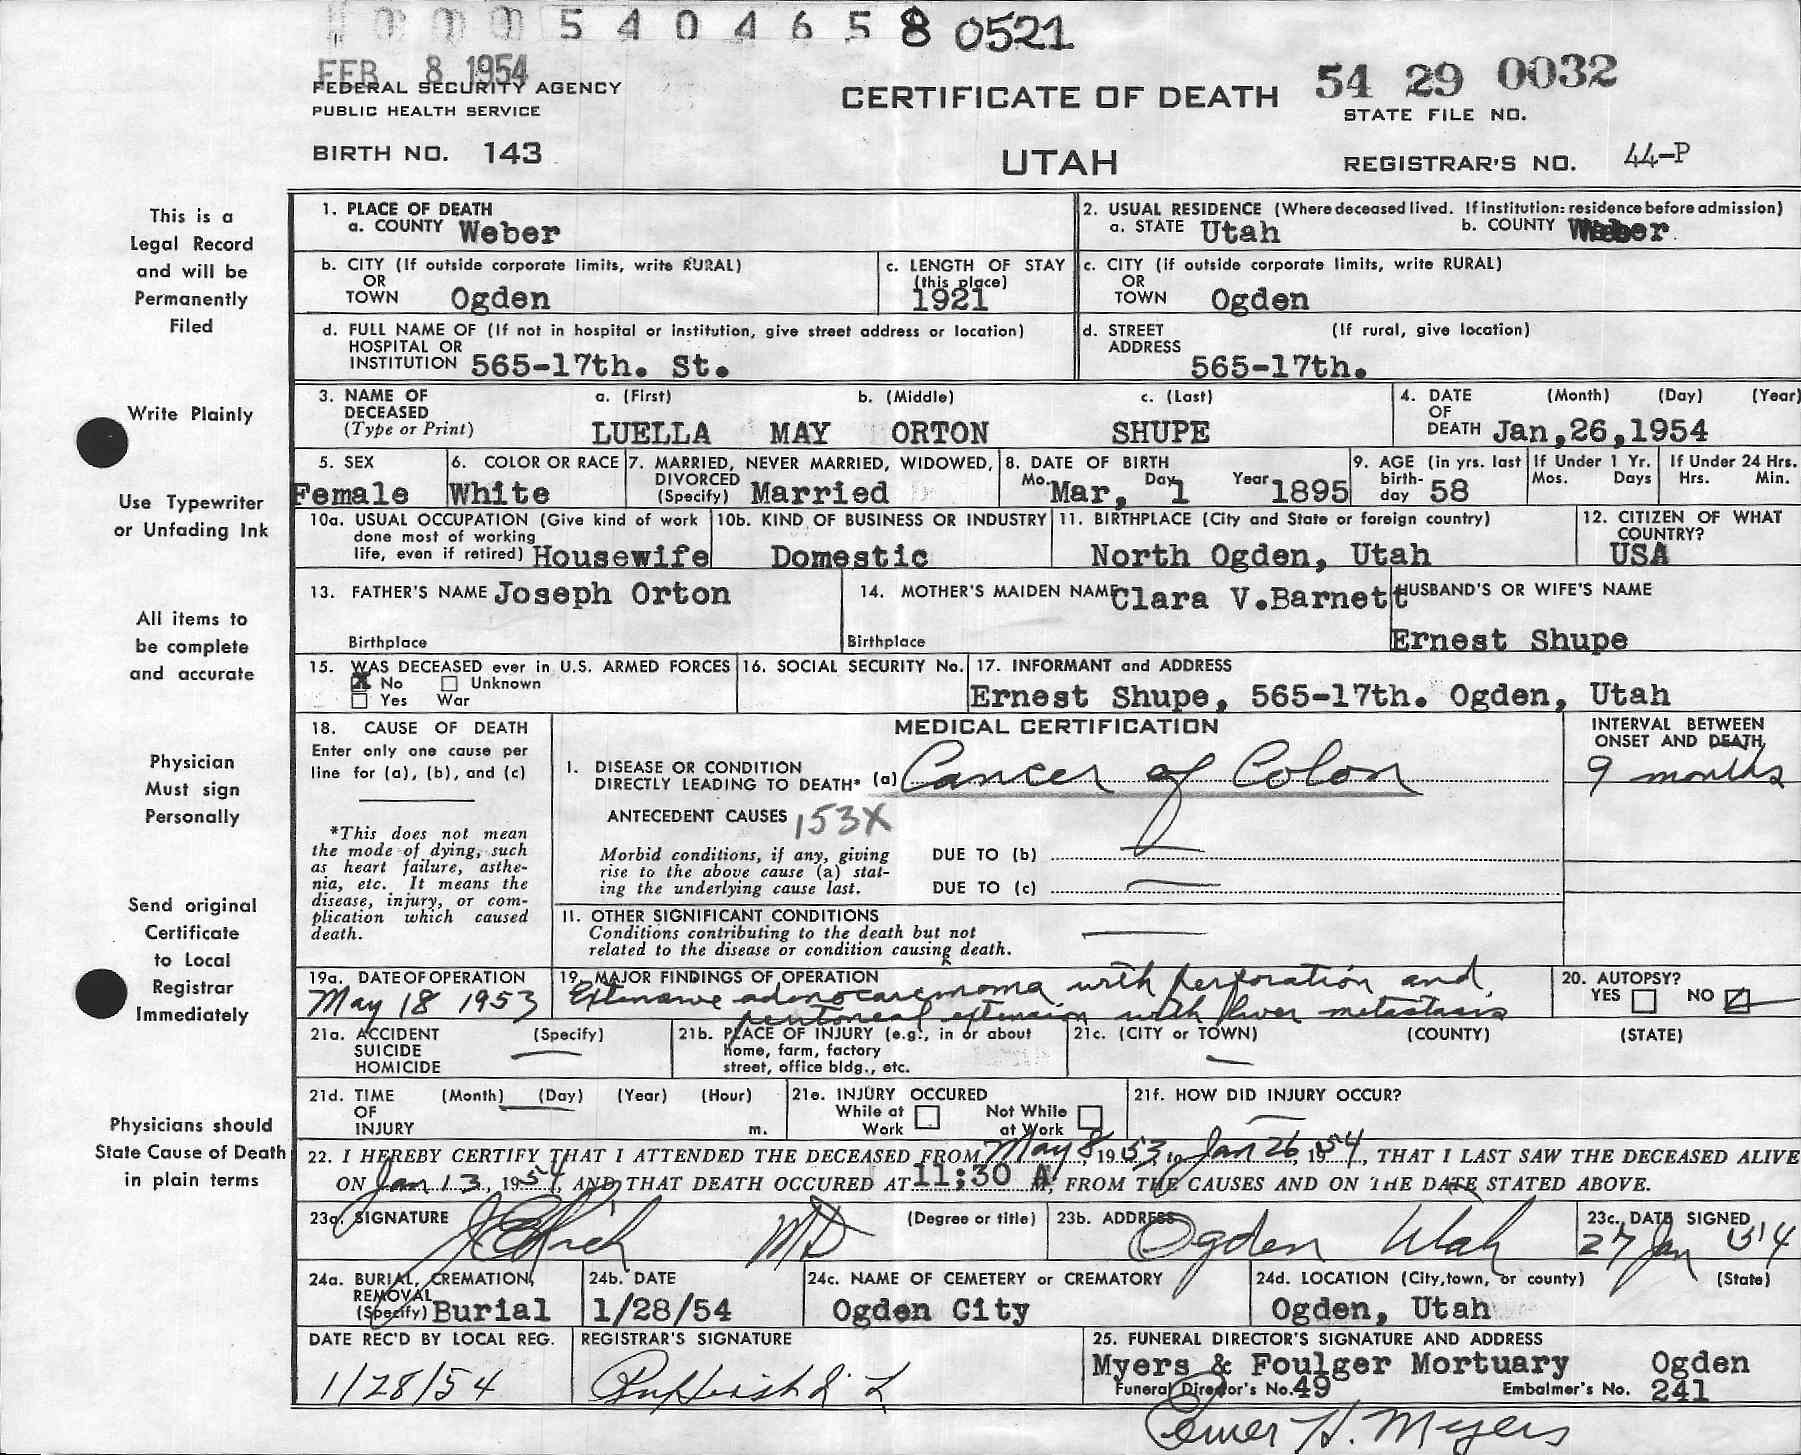 5 4 0 4 6 5 8 0521
FEB 8 1954
FEDERAL SECURITY AGENCY
PUBLIC HEALTH SERVICE
CERTIFICATE OF DEATH
54 29 0032
STATE FILE NO.
BIRTH NO. 143
UTAH
REGISTRAR'S NO. 44-P
This is a
Legal Record
and will be
Permanently
Filed
Write Plainly
Use Typewriter
or Unfading Ink
All items to
be complete
and accurate
Physician
Must sign
Personally
Send original
Certificate
to Local
Registrar
Immediately
Physicians should
State Cause of Death
in plain terms
1. PLACE OF DEATH
a. COUNTY Weber
2. USUAL RESIDENCE (Where deceased lived. If institution: residence before admission)
a. STATE Utah b. COUNTY Weber
b. CITY (If outside corporate limits, write RURAL)
OR
TOWN Ogden
c. LENGTH OF STAY
(this place)
1921
c. CITY (if outside corporate limits, write RURAL)
OR
TOWN Ogden
d. FULL NAME OF (If not in hospital or institution, give street address or location)
HOSPITAL OR
INSTITUTION 565-17th. St.
d. STREET (If rural, give location)
ADDRESS
565-17th.
3. NAME OF DECEASED
(Type or Print)
a. (First) b. (Middle) c. (Last)
LUELLA MAY ORTON SHUPE
4. DATE (Month) (Day) (Year)
OF
DEATH Jan,26,1954
5. SEX
Female
6. COLOR OR RACE
White
7. MARRIED, NEVER MARRIED, WIDOWED,
DIVORCED
(Specify) Married
8. DATE OF BIRTH
Mo. Mar, Day 1 Year 1895
9. AGE (in yrs. last
birth-
day 58
If Under 1 Yr.
Mos. Days
If Under 24 Hrs.
Hrs. Min.
10a. USUAL OCCUPATION (Give kind of work
done most of working
life, even if retired) Housewife
10b. KIND OF BUSINESS OR INDUSTRY
Domestic
11. BIRTHPLACE (City and State or foreign country)
North Ogden, Utah
12. CITIZEN OF WHAT
COUNTRY?
USA
13. FATHER'S NAME Joseph Orton
Birthplace
14. MOTHER'S MAIDEN NAME Clara V.Barnett
Birthplace
HUSBAND'S OR WIFE'S NAME
Ernest Shupe
15. WAS DECEASED ever in U.S. ARMED FORCES
X No Unknown
Yes War
16. SOCIAL SECURITY No.
17. INFORMANT and ADDRESS
Ernest Shupe, 565-17th. Ogden, Utah
18. CAUSE OF DEATH
Enter only one cause per
line for (a), (b), and (c)
*This does not mean
the mode of dying, such
as heart failure, asthe-
nia, etc. It means the
disease, injury, or com-
plication which caused
death.
MEDICAL CERTIFICATION
I. DISEASE OR CONDITION
DIRECTLY LEADING TO DEATH* (a) Cancer of Colon
INTERVAL BETWEEN
ONSET AND DEATH
9 months
ANTECEDENT CAUSES 153X
Morbid conditions, if any, giving
rise to the above cause (a) stat-
ing the underlying cause last.
DUE TO (b)
DUE TO (c)
II. OTHER SIGNIFICANT CONDITIONS
Conditions contributing to the death but not
related to the disease or condition causing death.
19a. DATE OF OPERATION
May 18 1953
19. MAJOR FINDINGS OF OPERATION
Extensive adenocarcinoma with perforation and
peritoneal extension with liver metastasis
20. AUTOPSY?
YES NO
21a. ACCIDENT (Specify)
SUICIDE
HOMICIDE
21b. PLACE OF INJURY (e.g., in or about
home, farm, factory
street, office bldg., etc.
21c. (CITY or TOWN) (COUNTY) (STATE)
21d. TIME (Month) (Day) (Year) (Hour)
OF
INJURY m.
21e. INJURY OCCURED
While at Work
Not While at Work
21f. HOW DID INJURY OCCUR?
22. I HEREBY CERTIFY THAT I ATTENDED THE DECEASED FROM May 8, 1953, to Jan 26, 1954, THAT I LAST SAW THE DECEASED ALIVE
ON Jan 13, 1954, AND THAT DEATH OCCURED AT 11:30 A M, FROM THE CAUSES AND ON THE DATE STATED ABOVE.
23a. SIGNATURE MD (Degree or title)
23b. ADDRESS Ogden Utah
23c. DATE SIGNED
27 Jan
24a. BURIAL, CREMATION,
REMOVAL
(Specify) Burial
24b. DATE
1/28/54
24c. NAME OF CEMETERY or CREMATORY
Ogden City
24d. LOCATION (City, town, or county) (State)
Ogden, Utah
DATE REC'D BY LOCAL REG.
1/28/54
REGISTRAR'S SIGNATURE
25. FUNERAL DIRECTOR'S SIGNATURE AND ADDRESS
Myers & Foulger Mortuary Ogden
Funeral Director's No. 49 Embalmer's No. 241
Elmer H. Myers